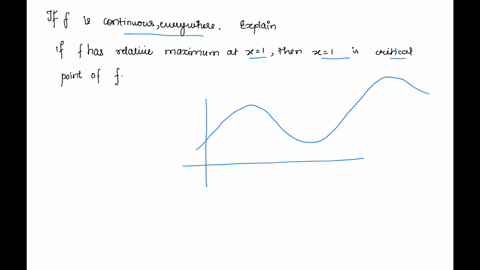 If f is continuous, everywhere. Explain
if f has relative maximum at x=1, then x=1 is critical
point of f.